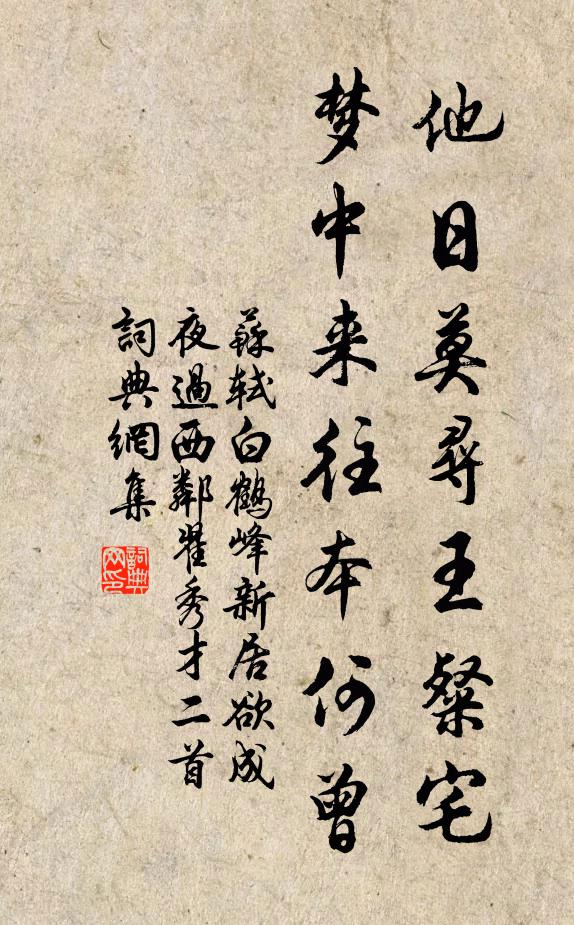 他日莫尋王粲宅
梦中来往本何曾
蘇軾白鶴峰新居欲成
夜過西鄰翟秀才二首
詞典網集
詞典
网印